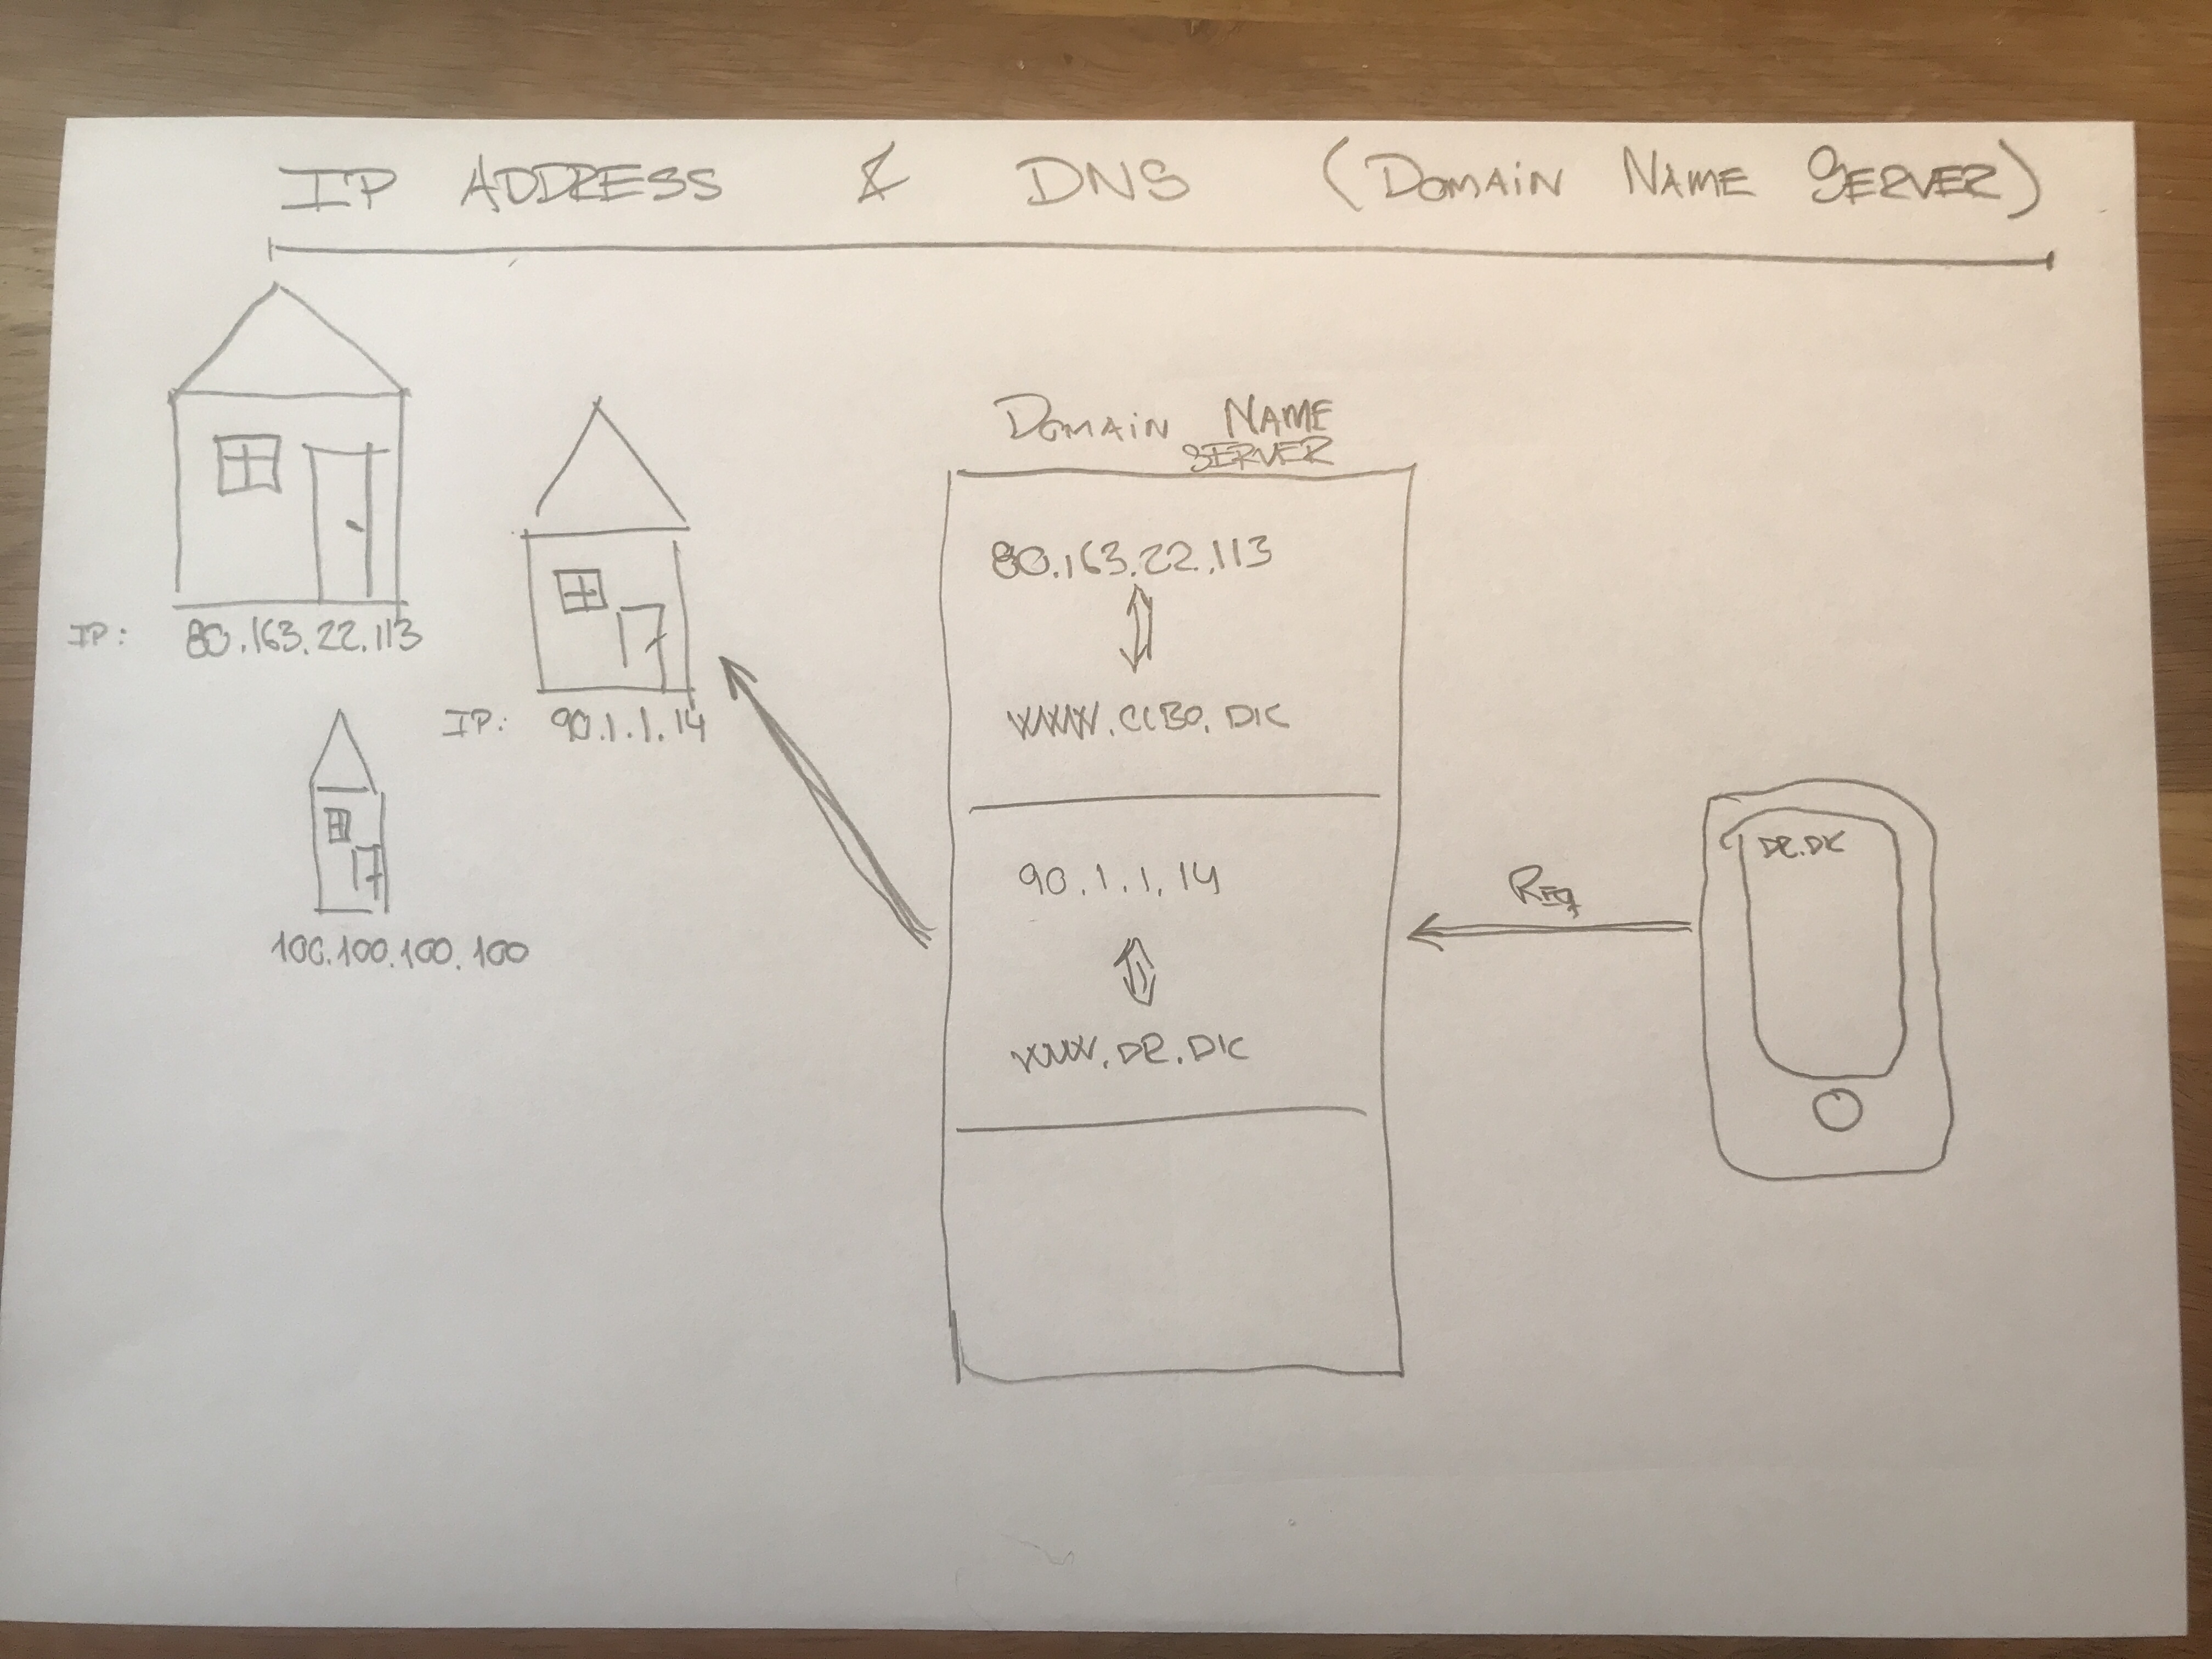 IP ADDRESS & DNS (DOMAIN NAME SERVER)
IP: 80.163.22.113
IP: 90.1.1.14
100.100.100.100
DOMAIN NAME
SERVER
80.163.22.113
WWW.CCBO.DK
90.1.1.14
WWW.DR.DK
REQ
DR.DK